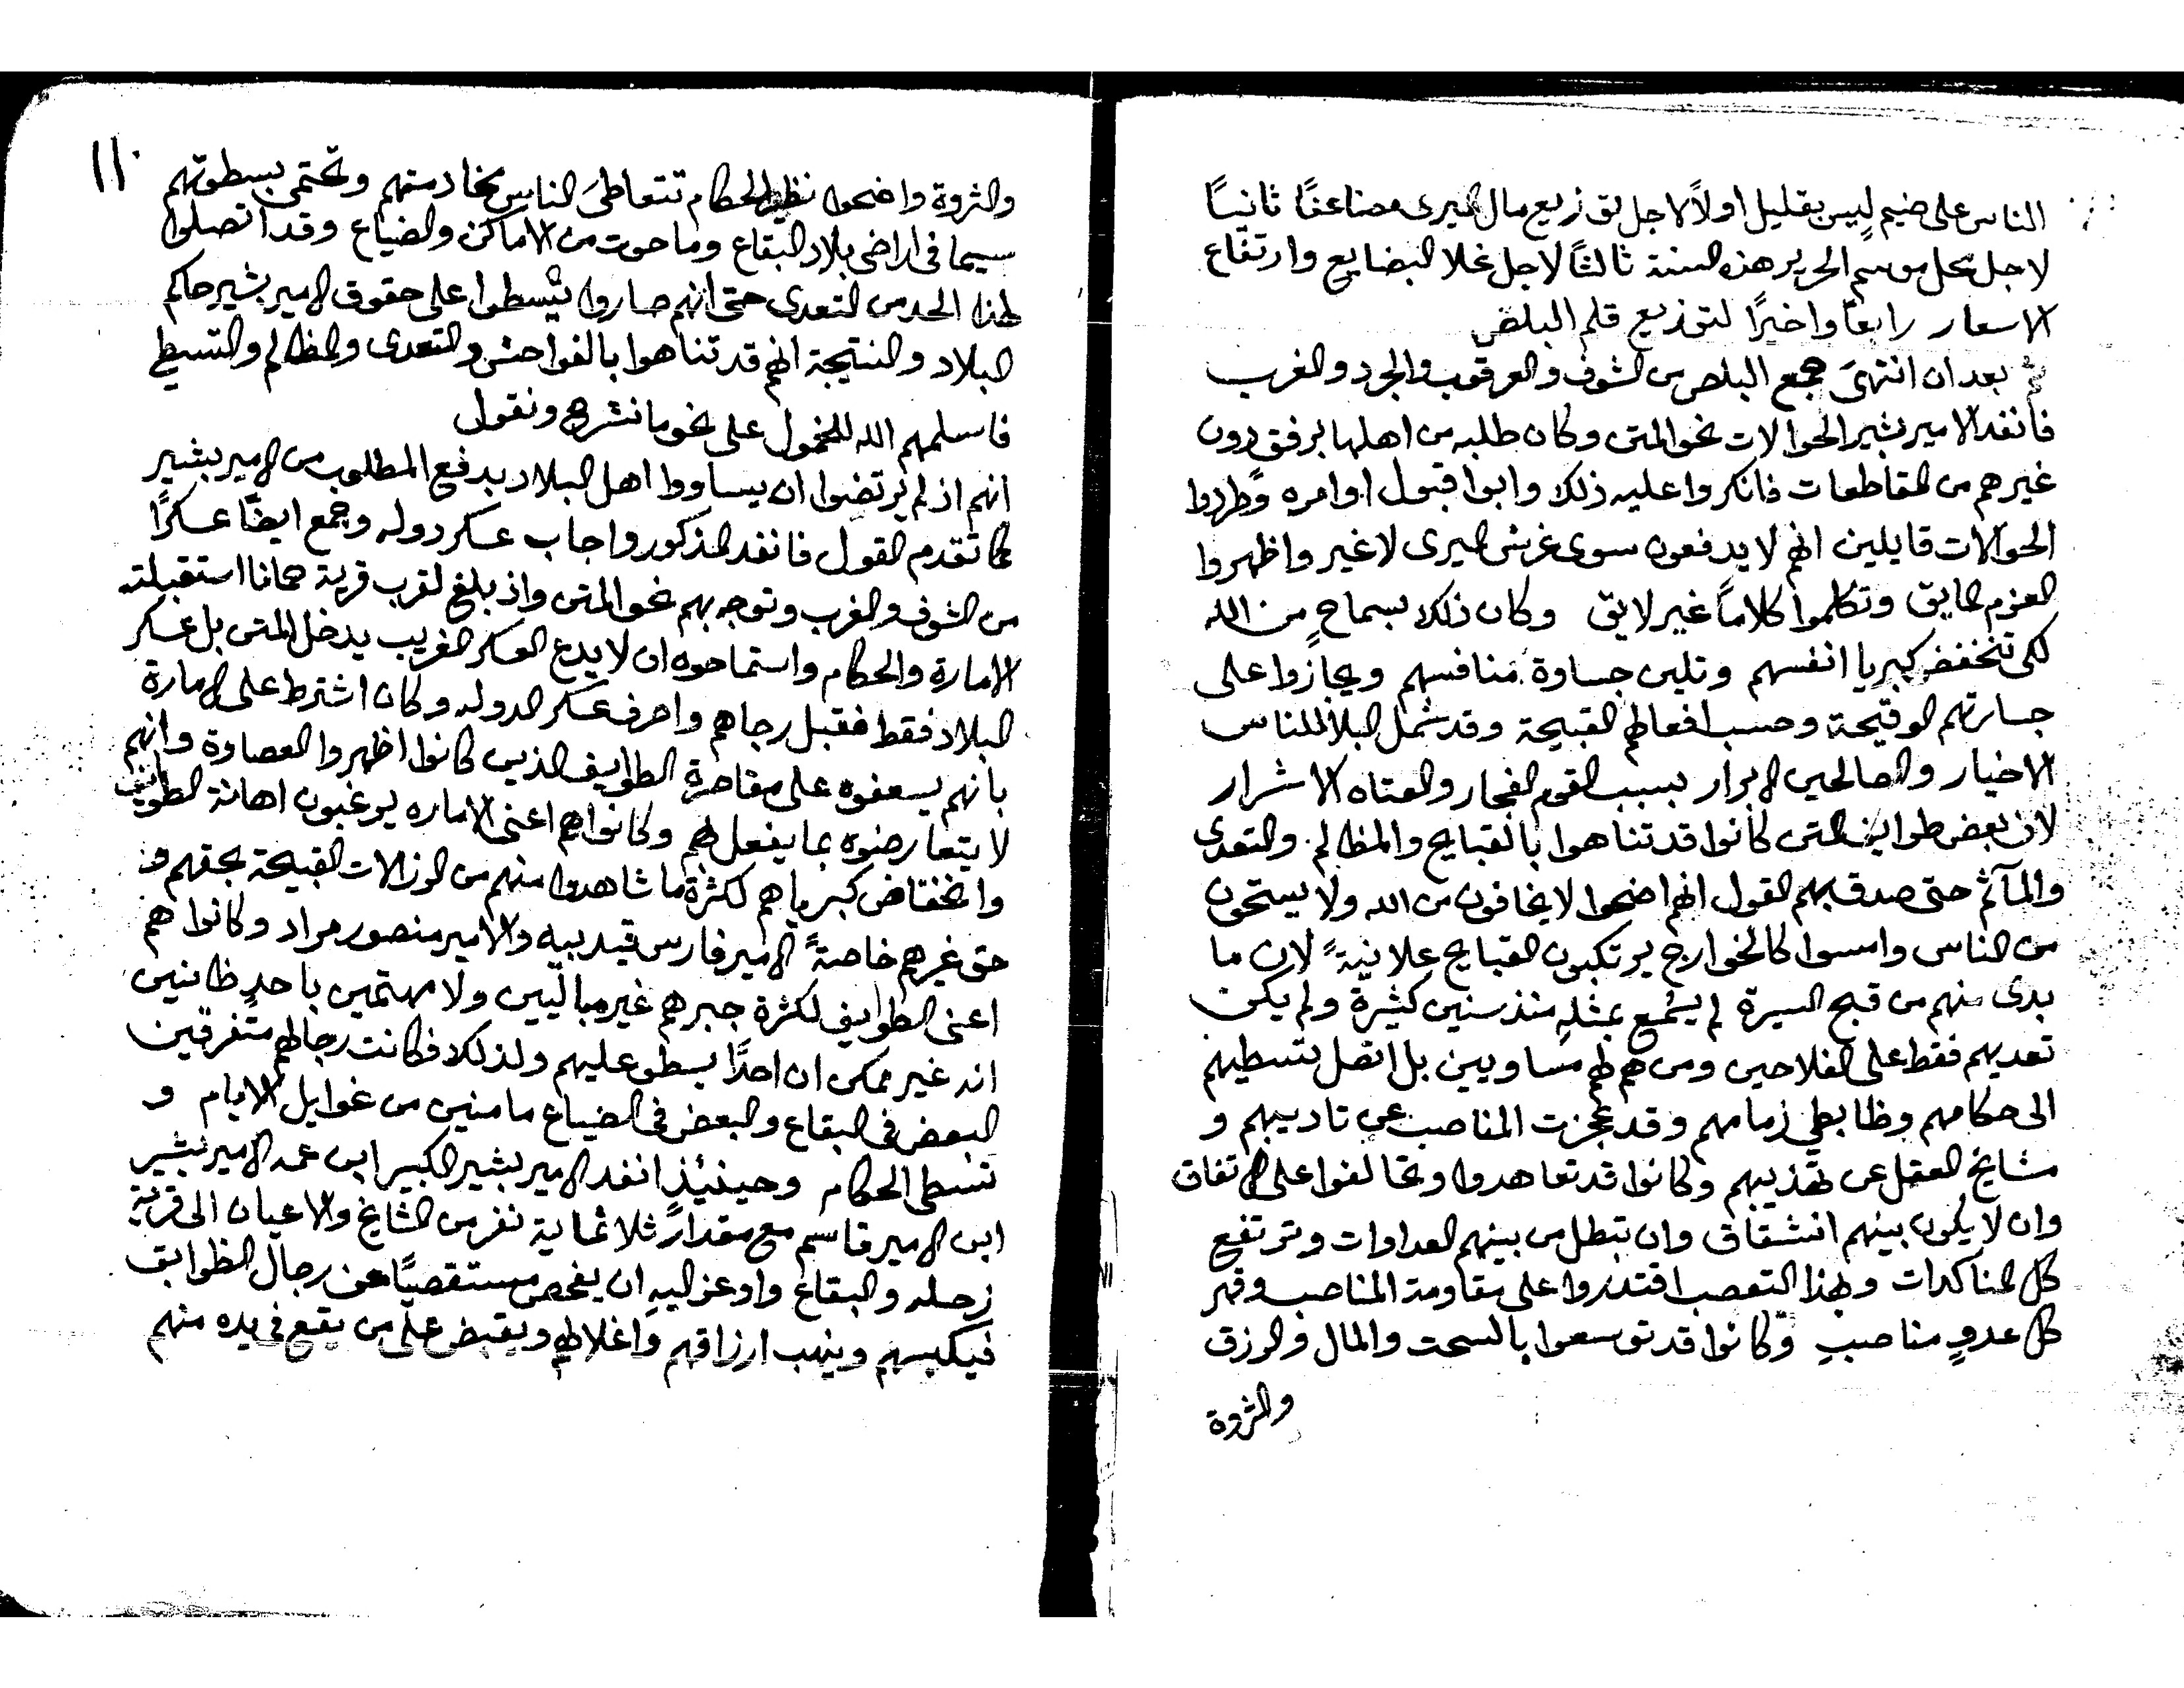 الناس على ضيمٍ ليس بقليل اولاً لاجل توزيع مال الميرى مضاعفًا ثانيًا
لاجل محل موسم الحرير هذه السنة ثالثًا لاجل غلا البضايع وارتفاع
الاسعار رابعًا واخيرًا لتوزيع قلم البلص
ثم بعد ان انتهىَ جمع البلص من الشوف والعرقوب والجرد والغرب
فانفد الامير بشير الحوالات نحو المتن وكان طلبه من اهلها برفقٍ دون
غيرهم من المقاطعات فانكروا عليه ذلك وابوا قبول اوامره وطردوا
الحوالات قايلين انهم لا يدفعون سوى غرش الميرى لا غير واظهروا
العزم المايق وتكلموا كلامًا غير لايق وكان ذلك بسماحٍ من الله
لكى تنخفض كبريا انفسهم وتلين جساوة منافسهم ويجازوا على
جسارتهم الوقيحة وحسب افعالهم القبيحة وقد شمل البلا للناس
الاخيار والصالحين الابرار بسبب القوم الفجار والعتاه الاشرار
لان بعض طوايف المتن كانوا قد تناهوا بالقبايح والمظالم والتعدى
والمآثم حتى صدق بهم القول انهم اضحوا لا يخافون من الله ولا يستحون
من الناس وامسوا كالخوارج يرتكبون القبايح علانيةً لان ما
بدى منهم من قبح السيرة لم يسمع بمثلهِ منذ سنين كثيرة ولم يكن
تعديهم فقط على الفلاحين ومن هم لهم مساويين بل اتصل تسطيهم
الى حكامهم وظابطي زمامهم وقد عجزت المناصب عن تاديبهم و
مشايخ العقل عن تهذيبهم وكانوا قد تعاهدوا وتحالفوا على الاتفاق
وان لا يكون بينهم انشقاق وان تبطل من بينهم العداوات وترتفع
كل المناكدات وبهذا التعصب اقتدروا على مقاومة المناصب وقهر
كل عدوٍ مناصبٍ وكانوا قد توسعوا بالسحت والمال والرزق
والثروة
١١٠
والثروة واضحوا نظير الحكام تتعاطىَ الناس بخادمتهم وتحتمى بسطوتهم
سيما فى اراضى بلاد البقاع وما حوت من الاماكن والضياع وقد اتصلوا
لهذا الحد من التعدى حتى انهم صاروا يتسطوا على حقوق الامير بشير حاكم
البلاد والنتيجة انهم قد تناهوا بالفواحش والتعدى والمظالم والتسطي
فاسلمهم الله للخمول على نحو ما نشرح ونقول
انهم اذ لم يرتضوا ان يساووا اهل البلاد بدفع المطلوب من الامير بشير
كما تقدم القول فانفد المذكور واجاب عسكر دوله وجمع ايضًا عسكرًا
من الشوف والغرب وتوجه بهم نحو المتن واذ بلغ لقرب قرية حمانا استقبلته
الامارة والحكام واستماحوه ان لا يدع العسكر الغريب يدخل المتن بل عسكر
البلاد فقط فقبل رجاهم واصرف عسكر الدوله وكان اشترط على الامارة
بانهم يسعفوه على مقاصرة الطوايف الذين كانوا اظهروا العصاوة وانهم
لا يتعارضوه بما يفعل لهم وكانوا هم اعنى الاماره يرغبون اهانة الطوايف
وانخفاض كبرياهم لكثرة ما شاهدوا منهم من الرزالات القبيحة بحقهم و
حق غيرهم خاصةً الامير فارس قيدبيه والامير منصور مراد وكانوا هم
اعنى الطوايف لكثرة جبرهم غير مباليين ولا مهتمين باحدٍ ظانين
انه غير ممكن ان احدًا يسطو عليهم ولذلك فكانت رجالهم متفرقين
البعض فى البقاع والبعض فى الضياع مامنين من غوايل الايام و
تسطى الحكام وحينئذٍ انفد الامير بشير الكبير ابن عمه الامير بشير
ابن الامير قاسم مع مقدار ثلاثماية نفر من المشايخ والاعيان الى قرية
زحله والبقاع واوعز اليهِ ان يفحص مستقصيًا عن رجال الطوايف
فيكبسهم وينهب ارزاقهم واغلالهم ويقبض على من يقع فى يده منهم